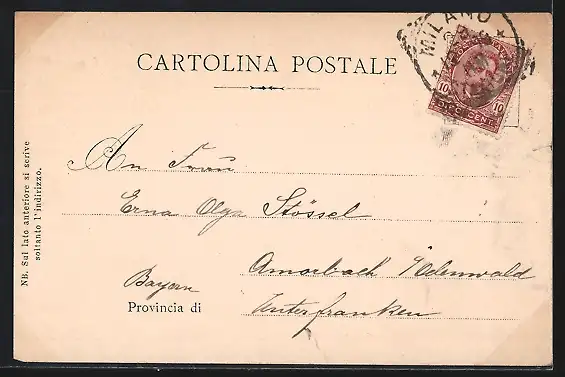 CARTOLINA POSTALE
MILANO
10 10
NB. Sul lato anteriore si scrive
soltanto l'indirizzo.
An Frau
Erna Olga Stössel
Amorbach i/Odenwald
Bayern
Provincia di Unterfranken